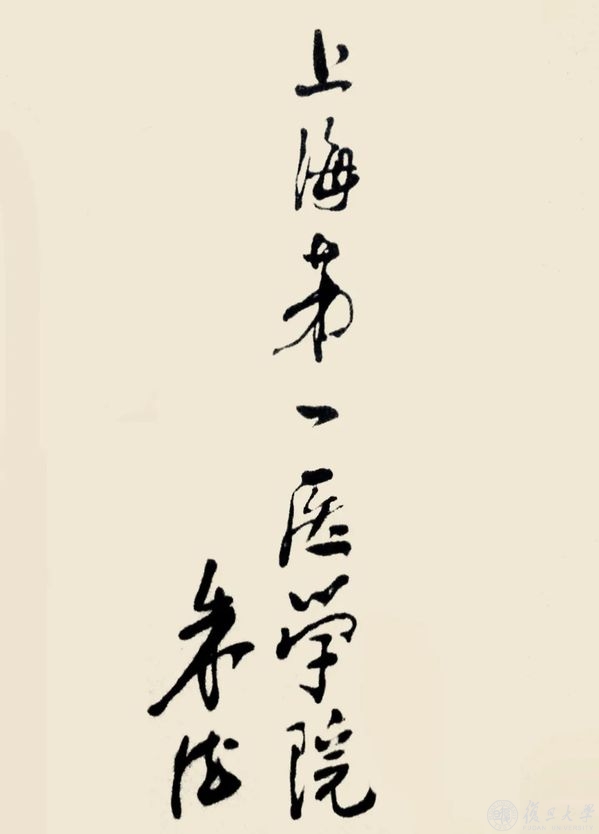 上海第一医学院
朱德
復旦大學
FUDAN UNIVERSITY